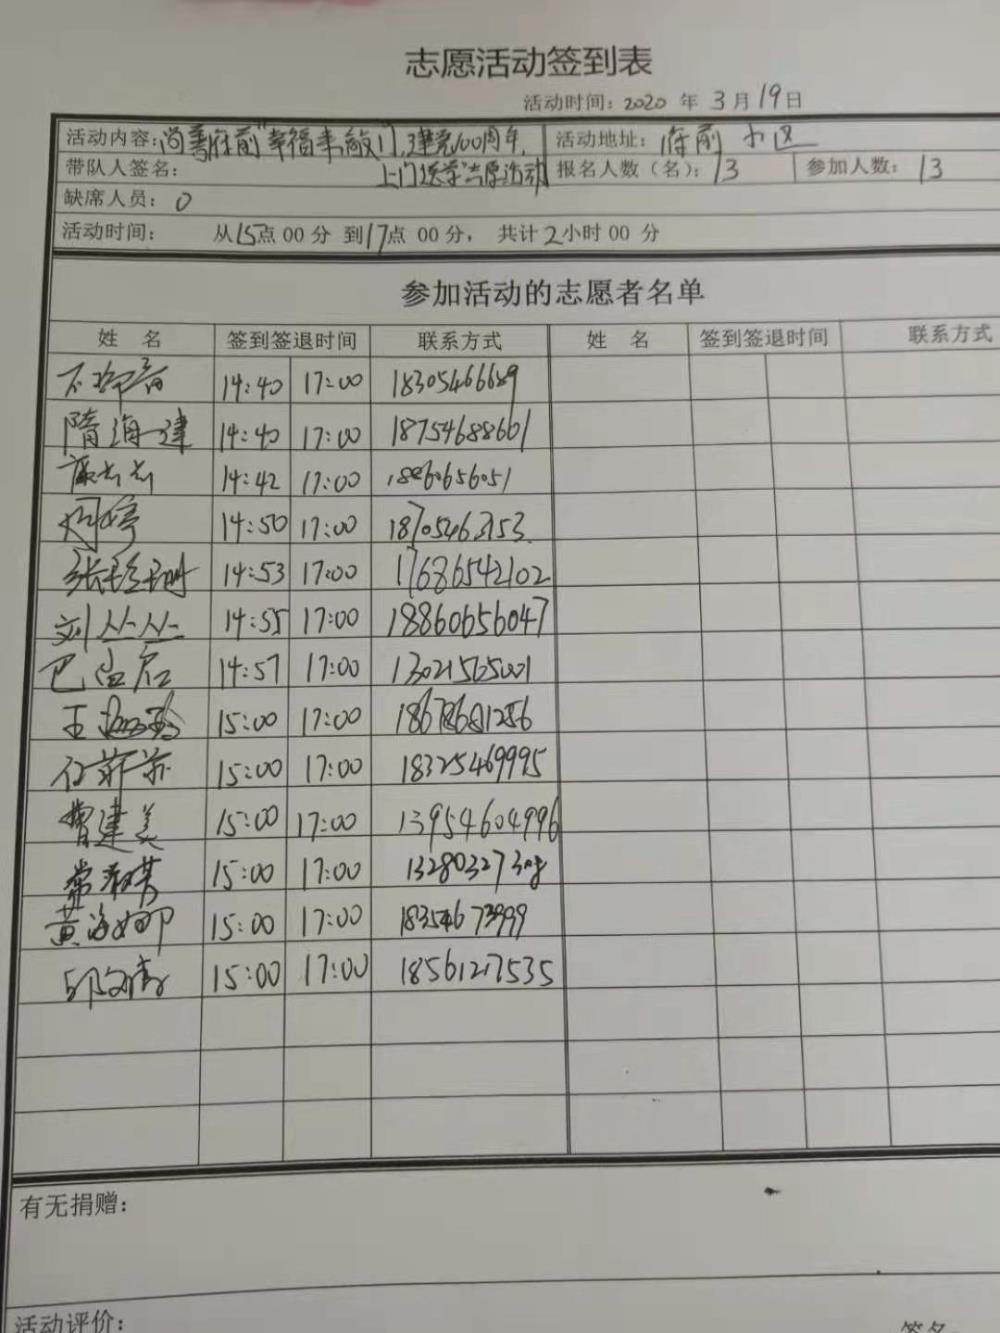 志愿活动签到表
活动时间：2020 年 3 月 19 日
活动内容：尚善府前"幸福来敲门,建党100周年, 活动地址：府前 小区
带队人签名： 上门送学志愿活动 报名人数（名）：13 参加人数：13
缺席人员：0
活动时间： 从15点 00 分 到17点 00 分， 共计2小时 00 分
参加活动的志愿者名单
姓 名 签到签退时间 联系方式 姓 名 签到签退时间 联系方式
14:40 17:00 18305466689
隋海建 14:40 17:00 18754688601
14:42 17:00 18860656051
14:50 17:00
张珍珊 14:53 17:00 17686542102
刘丛丛 14:55 17:00 18860656047
巴 14:57 17:00 13021565001
王海 15:00 17:00 18678681256
任菲菲 15:00 17:00 18325469995
曹建美 15:00 17:00 13954604996
15:00 17:00
黄海娜 15:00 17:00 18354673999
邱文 15:00 17:00 18561217535
有无捐赠：
活动评价： 签名